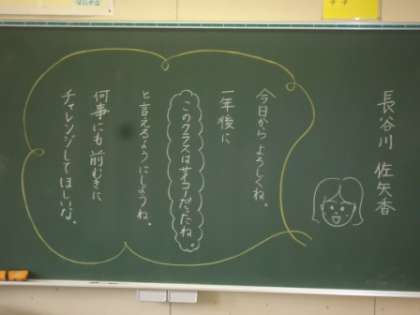 長谷川 佐矢香
今日から よろしくね。
一年後に
このクラスはサイコーだったね。
と言えるようにしようね。
何事にも前むきに
チャレンジしてほしいな。